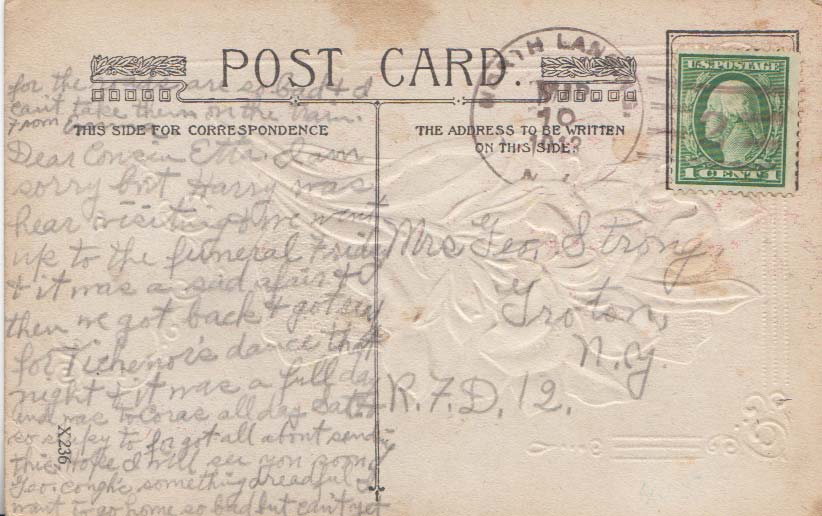 POST CARD.
THIS SIDE FOR CORRESPONDENCE
THE ADDRESS TO BE WRITTEN
ON THIS SIDE.
NORTH LANS
10
U.S. POSTAGE
1 CENT 1
for the are so bad & I
can't take them on the train.
From
Dear Cousin Etta. I am
sorry but Harry was
hear visiting & we went
up to the funeral Friday
& it was a sad afair &
then we got back & got
for Tichenor's dance that
night & it was a full day
and was to Coras all day
so to forgot all about sending
this. Hope I will see you soon
Geo. cough's something dreadful I
want to go home so bad but can't yet
X236.
Mrs Geo. Strong,
Groton,
N.Y.
R.F.D. 12.